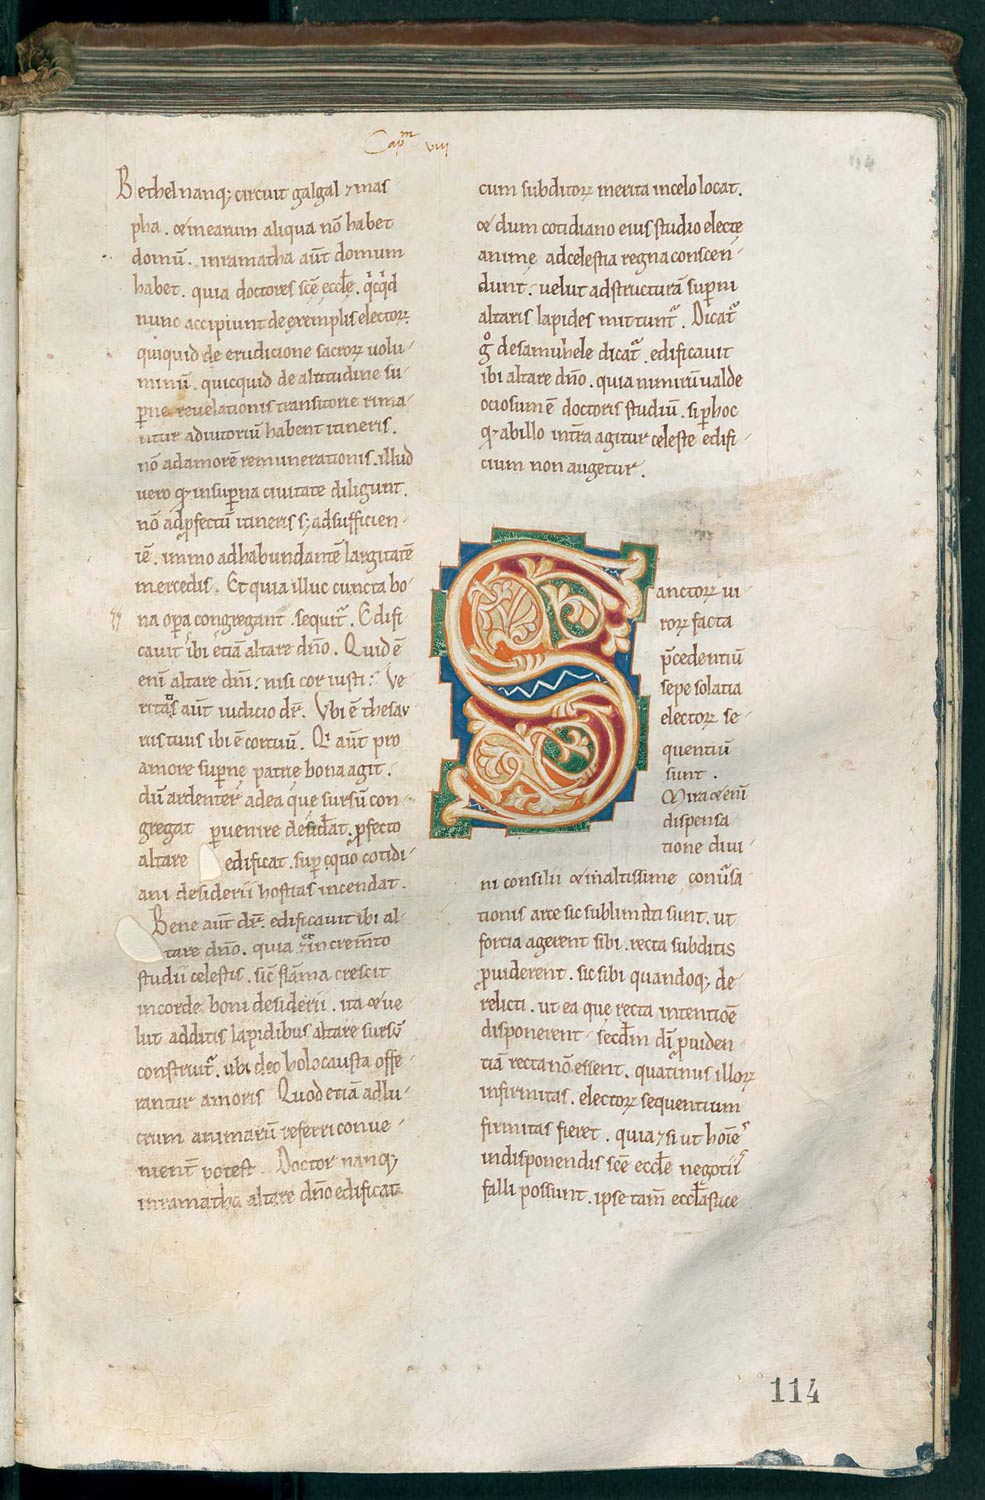 Cap^m viij
Bethel nanq; circuit galgal ⁊ mas
pha. & in earum aliqua nō habet
domū. in ramatha aūt domum
habet. quia doctores scē eccłe. q̇cq̇d
nunc accipiunt de exemplis electoꝝ.
quiquid de erudicione sacroꝝ uolu-
minū. quicquid de altitudine su-
p̱ne reuelationis transitorie rima-
ntur adiutoriū habent itineris.
nō ad amorē remunerationis. illud
uero q̇ in sup̱na ciuitate diligunt.
nō ad p̱fectū itineris s; ad sufficien-
tē. immo ad habundantē largitatē
mercedis. Et quia illuc cuncta bo-
na op̱a congregant. sequit᷑. Edifi
cauit ibi etiā altare dn̄o. Quid ē
eni altare dn̄i. nisi cor iusti? Ve
ritas aūt iudicio dr̄. Vbi ē thesau
rus tuus ibi ē cor tuū. Qi aūt pro
amore sup̱ne patrie bona agit.
dū ardenter ad ea que sursū con-
gregat p̱uenire desidāt. p̱fecto
altare edificat. sup̱ q̇ tio cotidi-
ani desiderii hostias incendat.
Bene aūt dr̄. edificauit ibi al-
tare dn̄o. quia in crem̄to
studii celestis. sic̄ flāma crescit
in corde boni desiderii. ita & ue
lut additis lapidibus altare sursū
construit᷑. ubi deo holocausta offe-
rantur amoris. Quod etiā ad lu-
crum animarū referri conue-
nient̄ potest. Doctor nanq;
in ramatha altare dn̄o edificat
cum subditoꝝ merita in celo locat.
& dum cotidiano eius studio electę
animę ad celestia regna conscen-
dunt. uelut ad structurā sup̱ni
altaris lapides mittunt᷑. Dicat᷑
g̊ de samuhele dicat᷑. edificauit
ibi altare dn̄o. quia nimirū ualde
ociosum ē doctoris studiū. si p̱ hoc
q̇ ab illo intra agitur celeste edifi-
cium non augetur.
Sanctoꝝ ui-
roꝝ facta
p̄cedentiū
sepe solatia
electoꝝ se-
quentiū
sunt.
Mira & eni
dispensa
tione diui-
ni consilii & in altissime conuersa
tionis arce sic sublimati sunt. ut
forcia agerent sibi. recta subditis
p̱uiderent. sic sibi quandoq; de
relicti. ut ea que recta intentiōe
disponerent secdm̄ dī p̱uiden
tiā recta nō essent. quatinus illoꝝ
infirmitas. electoꝝ sequentium
firmitas fieret. quia ⁊ si ut hoīes
in disponendis scē eccłe negotiis
falli possunt. ipse tam̄ eccłastice
114